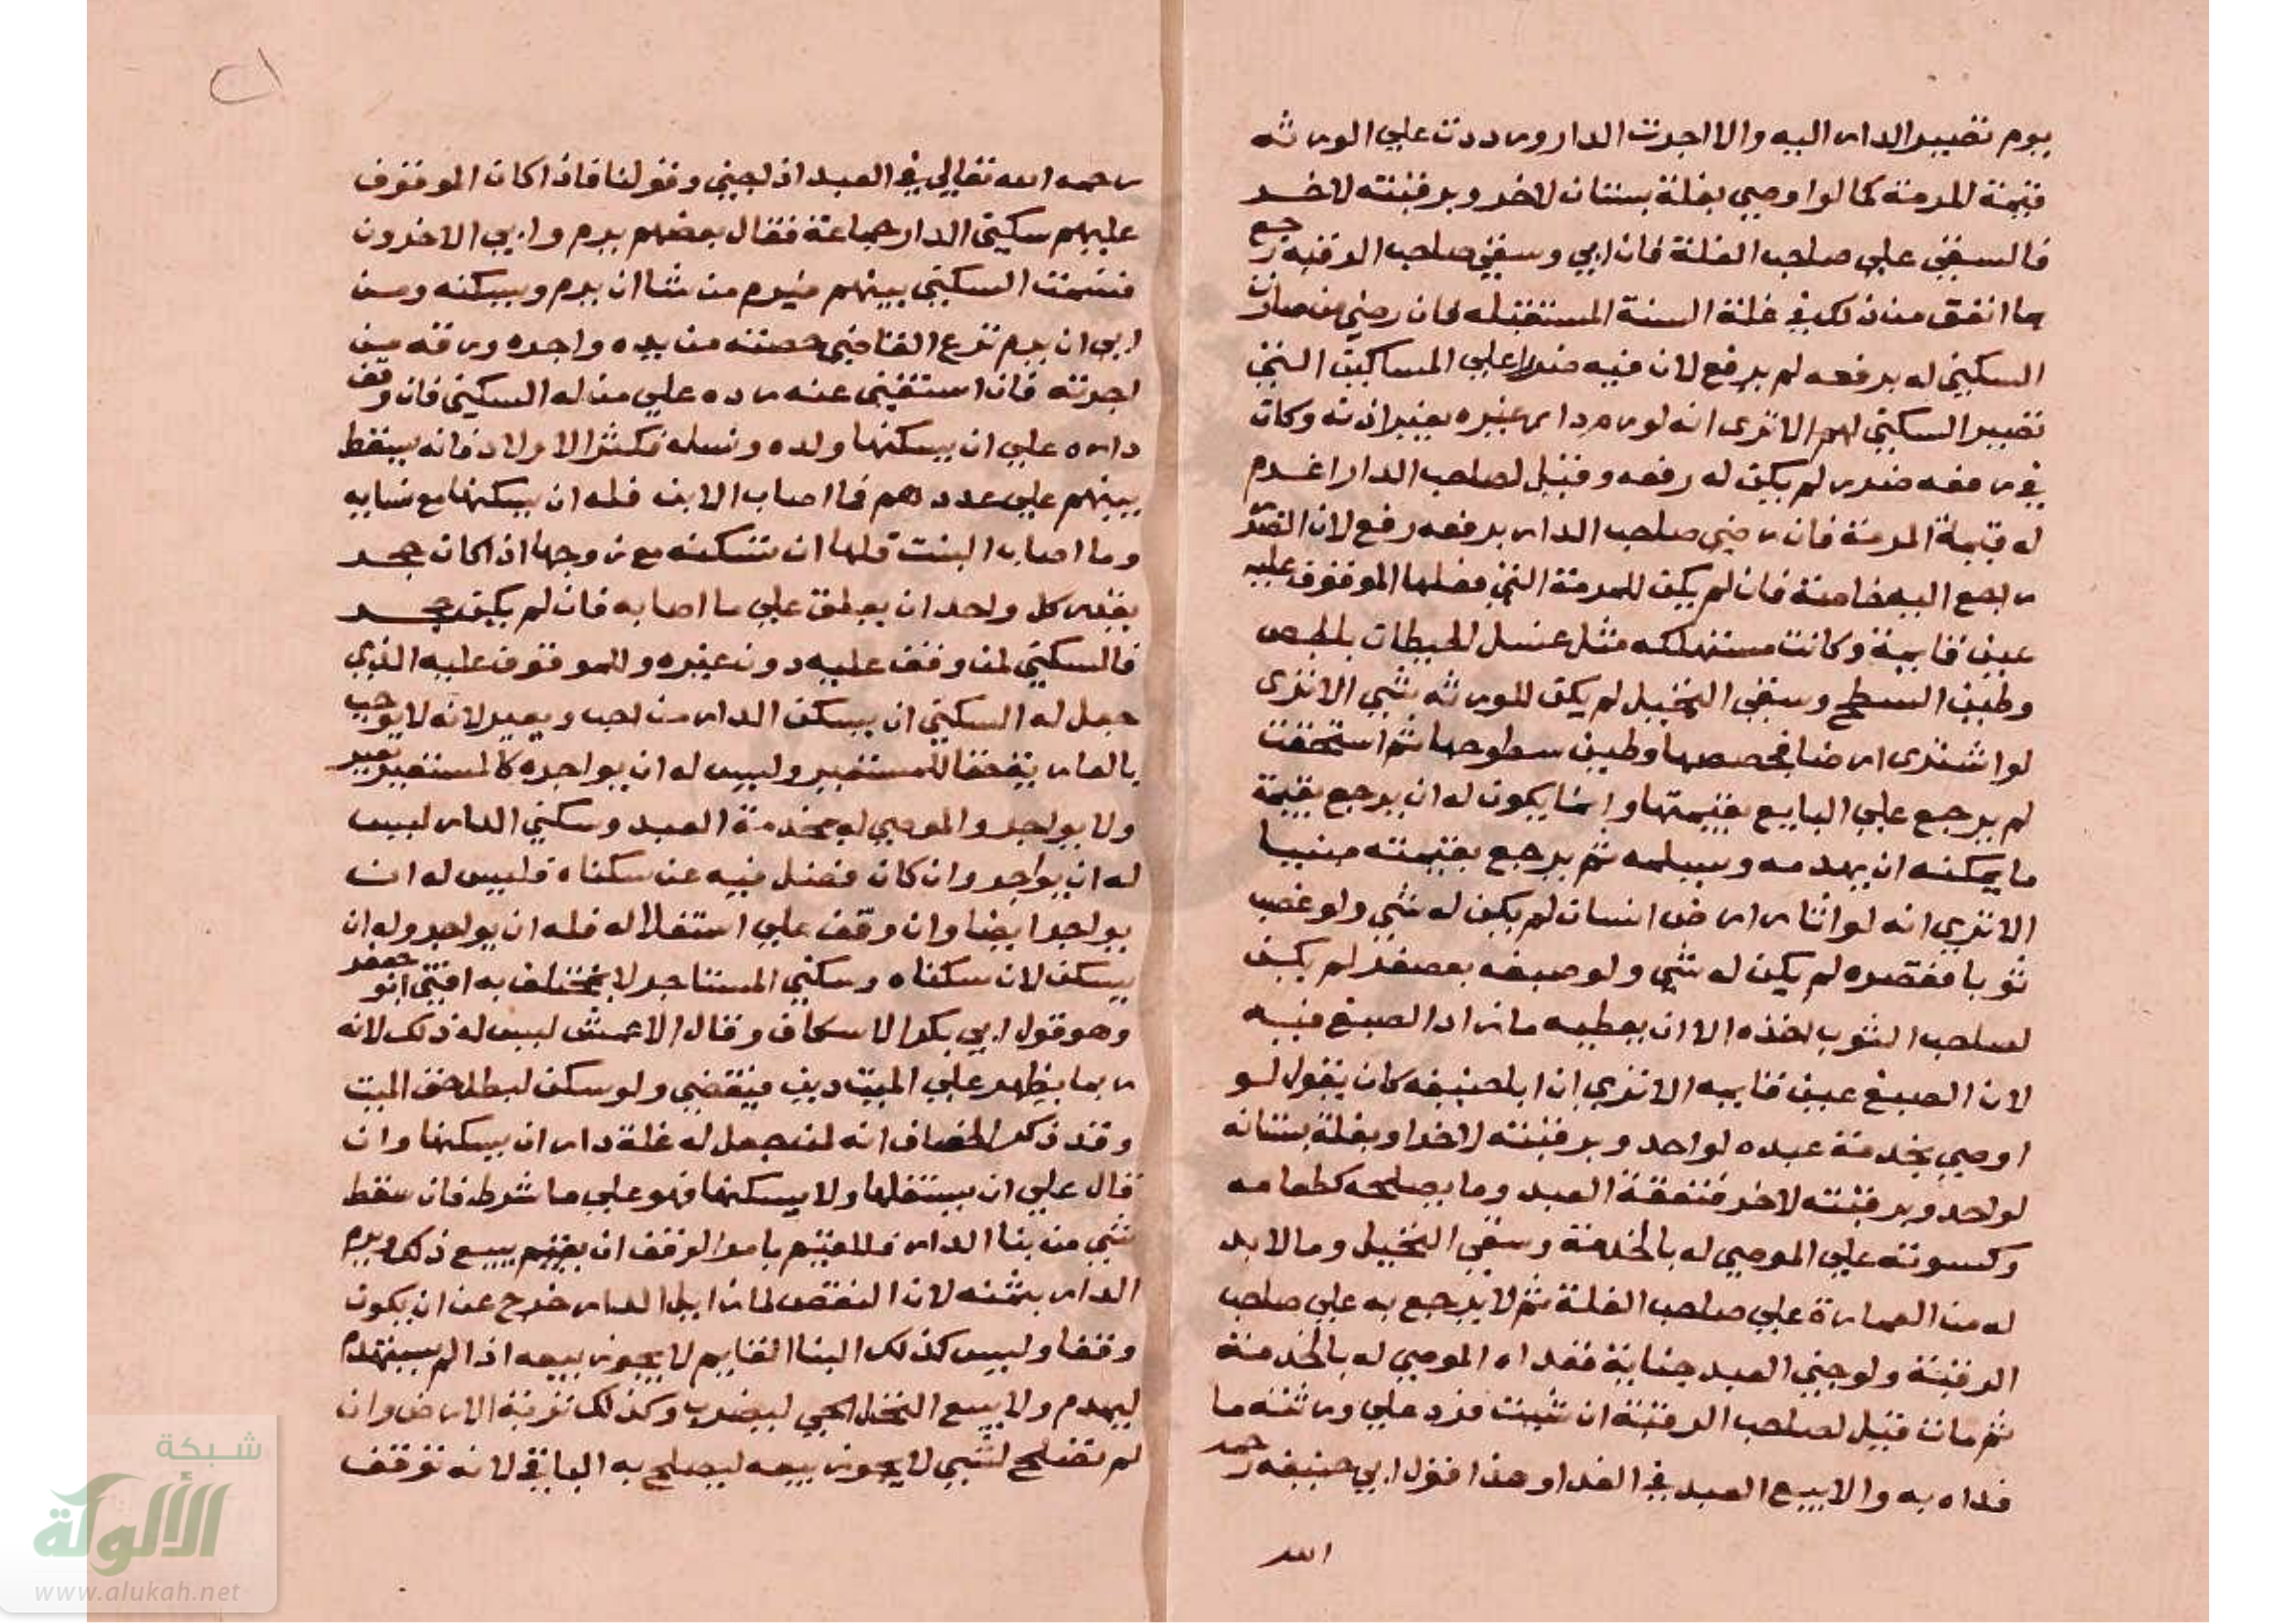 يوم تصيير الدار اليه والا اجرت الدار ورددت علي الورثه
قيمة المرمة كما لو اوصي بغلة بستان لاخر وبرقبته لاخر
فالسقي علي صاحب الغلة فان ابي وسقي صاحب الرقبة رجع
بما انفق من ذلك في غلة السنة المستقبله فان رضي من صارت
السكني له برفعه لم يرفع لان فيه ضررا علي المساكين التي
تصيير السكني لهم الا ترى انه لو رم دار غيره بغير اذنه وكان
في رفعه ضرر لم يكن له رفعه وقيل لصاحب الدار اغرم
له قيمة المرمة فان رضي صاحب الدار برفعه رفع لان الضرر
راجع اليه خاصة فان لم يكن للمرمة التي فعلها الموقوف عليه
عين قايمة وكانت مستهلكه مثل غسل الحيطان بالجص
وطين السطح وسقي النخيل لم يكن للورثه شي الا ترى
لو اشترى ارضا فجصصها وطين سطوحها ثم استحقت
لم يرجع علي البايع بقيمتها وانما يكون له ان يرجع بقيمة
ما يمكنه ان يهدمه ويسلمه ثم يرجع بقيمته مبنيا
الا تري انه لو اثار ارض انسان لم يكن له شي ولو غصب
ثوبا فقصره لم يكن له شي ولو صبغه بعصفر لم يكن
لصاحب الثوب اخذه الا ان يعطيه ما زاد الصبغ فيه
لان الصبغ عين قايمه الا تري ان ابا حنيفه كان يقول لو
اوصي بخدمة عبده لواحد وبرقبته لاخر او بغلة بستانه
لواحد وبرقبته لاخر فنفقة العبد وما يصلحه كطعامه
وكسوته علي الموصي له بالخدمة وسقي النخيل وما لا بد
له من العمارة علي صاحب الغلة ثم لا يرجع به علي صاحب
الرقبة ولو جني العبد جناية ففداه الموصي له بالخدمة
ثم مات قيل لصاحب الرقبة ان شيت فرد علي ورثته ما
فداه به والا بيع العبد في الفدا وهذا قول ابي حنيفه رحمه
الله
رحمه الله تعالي في العبد اذا جني وقولنا فاذا كان الموقوف
عليهم سكني الدار جماعة فقال بعضهم يرم وابي الاخرون
قسمت السكني بينهم فيرم من شا ان يرم ويسكنه ومن
ابي ان يرم نزع القاضي حصته من يده واجره ورمه من
اجرته فان استغني عنه رده علي من له السكني فان وقف
داره علي ان يسكنها ولده ونسله فكثر الاولاد فانه يسقط
بينهم علي عددهم فما اصاب الابن فله ان يسكنها مع نسايه
وما اصاب البنت فلها ان تسكنه مع زوجها اذا كان حجر
يقدر كل واحد ان يغلق علي ما اصابه فان لم يكن حجر
فالسكني لمن وقف عليه دون غيره وللموقوف عليه الذي
جعل له السكني ان يسكن الدار من احب ويعير لانه لا يوجب
بالعار ية حقا للمستعير وليس له ان يواجره كالمستعير يعير
ولا يواجر والموصي له بخدمة العبد وسكني الدار ليس
له ان يواجر وان كان فضل فيه عن سكناه فليس له ان
يواجر ايضا وان وقف علي استغلاله فله ان يواجر وله ان
يسكن لان سكناه وسكني المستاجر لا يختلف به افتي ابو جعفر
وهو قول ابي بكر الاسكاف وقال الاعمش ليس له ذلك لانه
ربما يظهر علي الميت دين فيقضي ولو سكن لبطل حق الميت
وقد ذكر الخصاف انه لمن جعل له غلة دار ان يسكنها وان
قال علي ان يستغلها ولا يسكنها فهو علي ما شرط فان سقط
شي من بنا الدار فللقيم بامر الوقف ان يقيم يبيع ذلك ويرم
الدار بثمنه لان النقض لما زايل الدار خرج عن ان يكون
وقفا وليس كذلك البنا القايم لا يجوز بيعه اذا لم ينهدم
ليهدم ولا بيع النخل الحي ليضرب وكذلك تربة الارض وان
لم تصلح لشي لا يجوز بيعه ليصلح به الباقي لانه توقف
شبكة
الألوكة
www.alukah.net